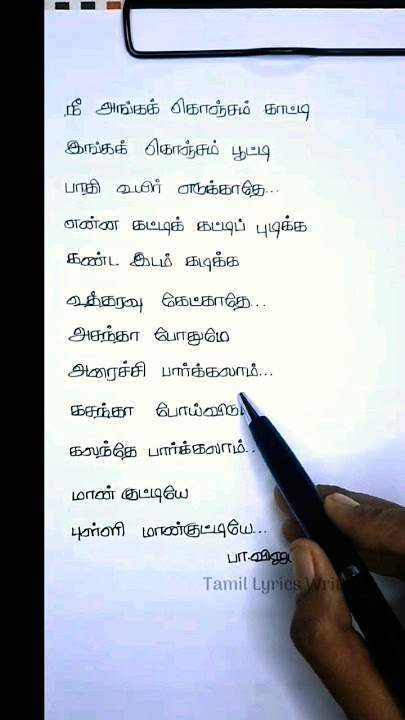 நீ அங்கக் கொஞ்சம் காட்டி
இங்கக் கொஞ்சம் பூட்டி
பாதி உயிர் எடுக்காதே...
என்ன கட்டிக் கட்டிப் புடிக்க
கண்ட இடம் கடிக்க
உத்தரவு கேட்காதே...
அசந்தா போதுமே
அரைச்சி பார்க்கலாம்...
கசந்தா போய்விடு
கலந்தே பார்க்கலாம்..
மான் குட்டியே
புள்ளி மான்குட்டியே...
பா.விஜய்
Tamil Lyrics